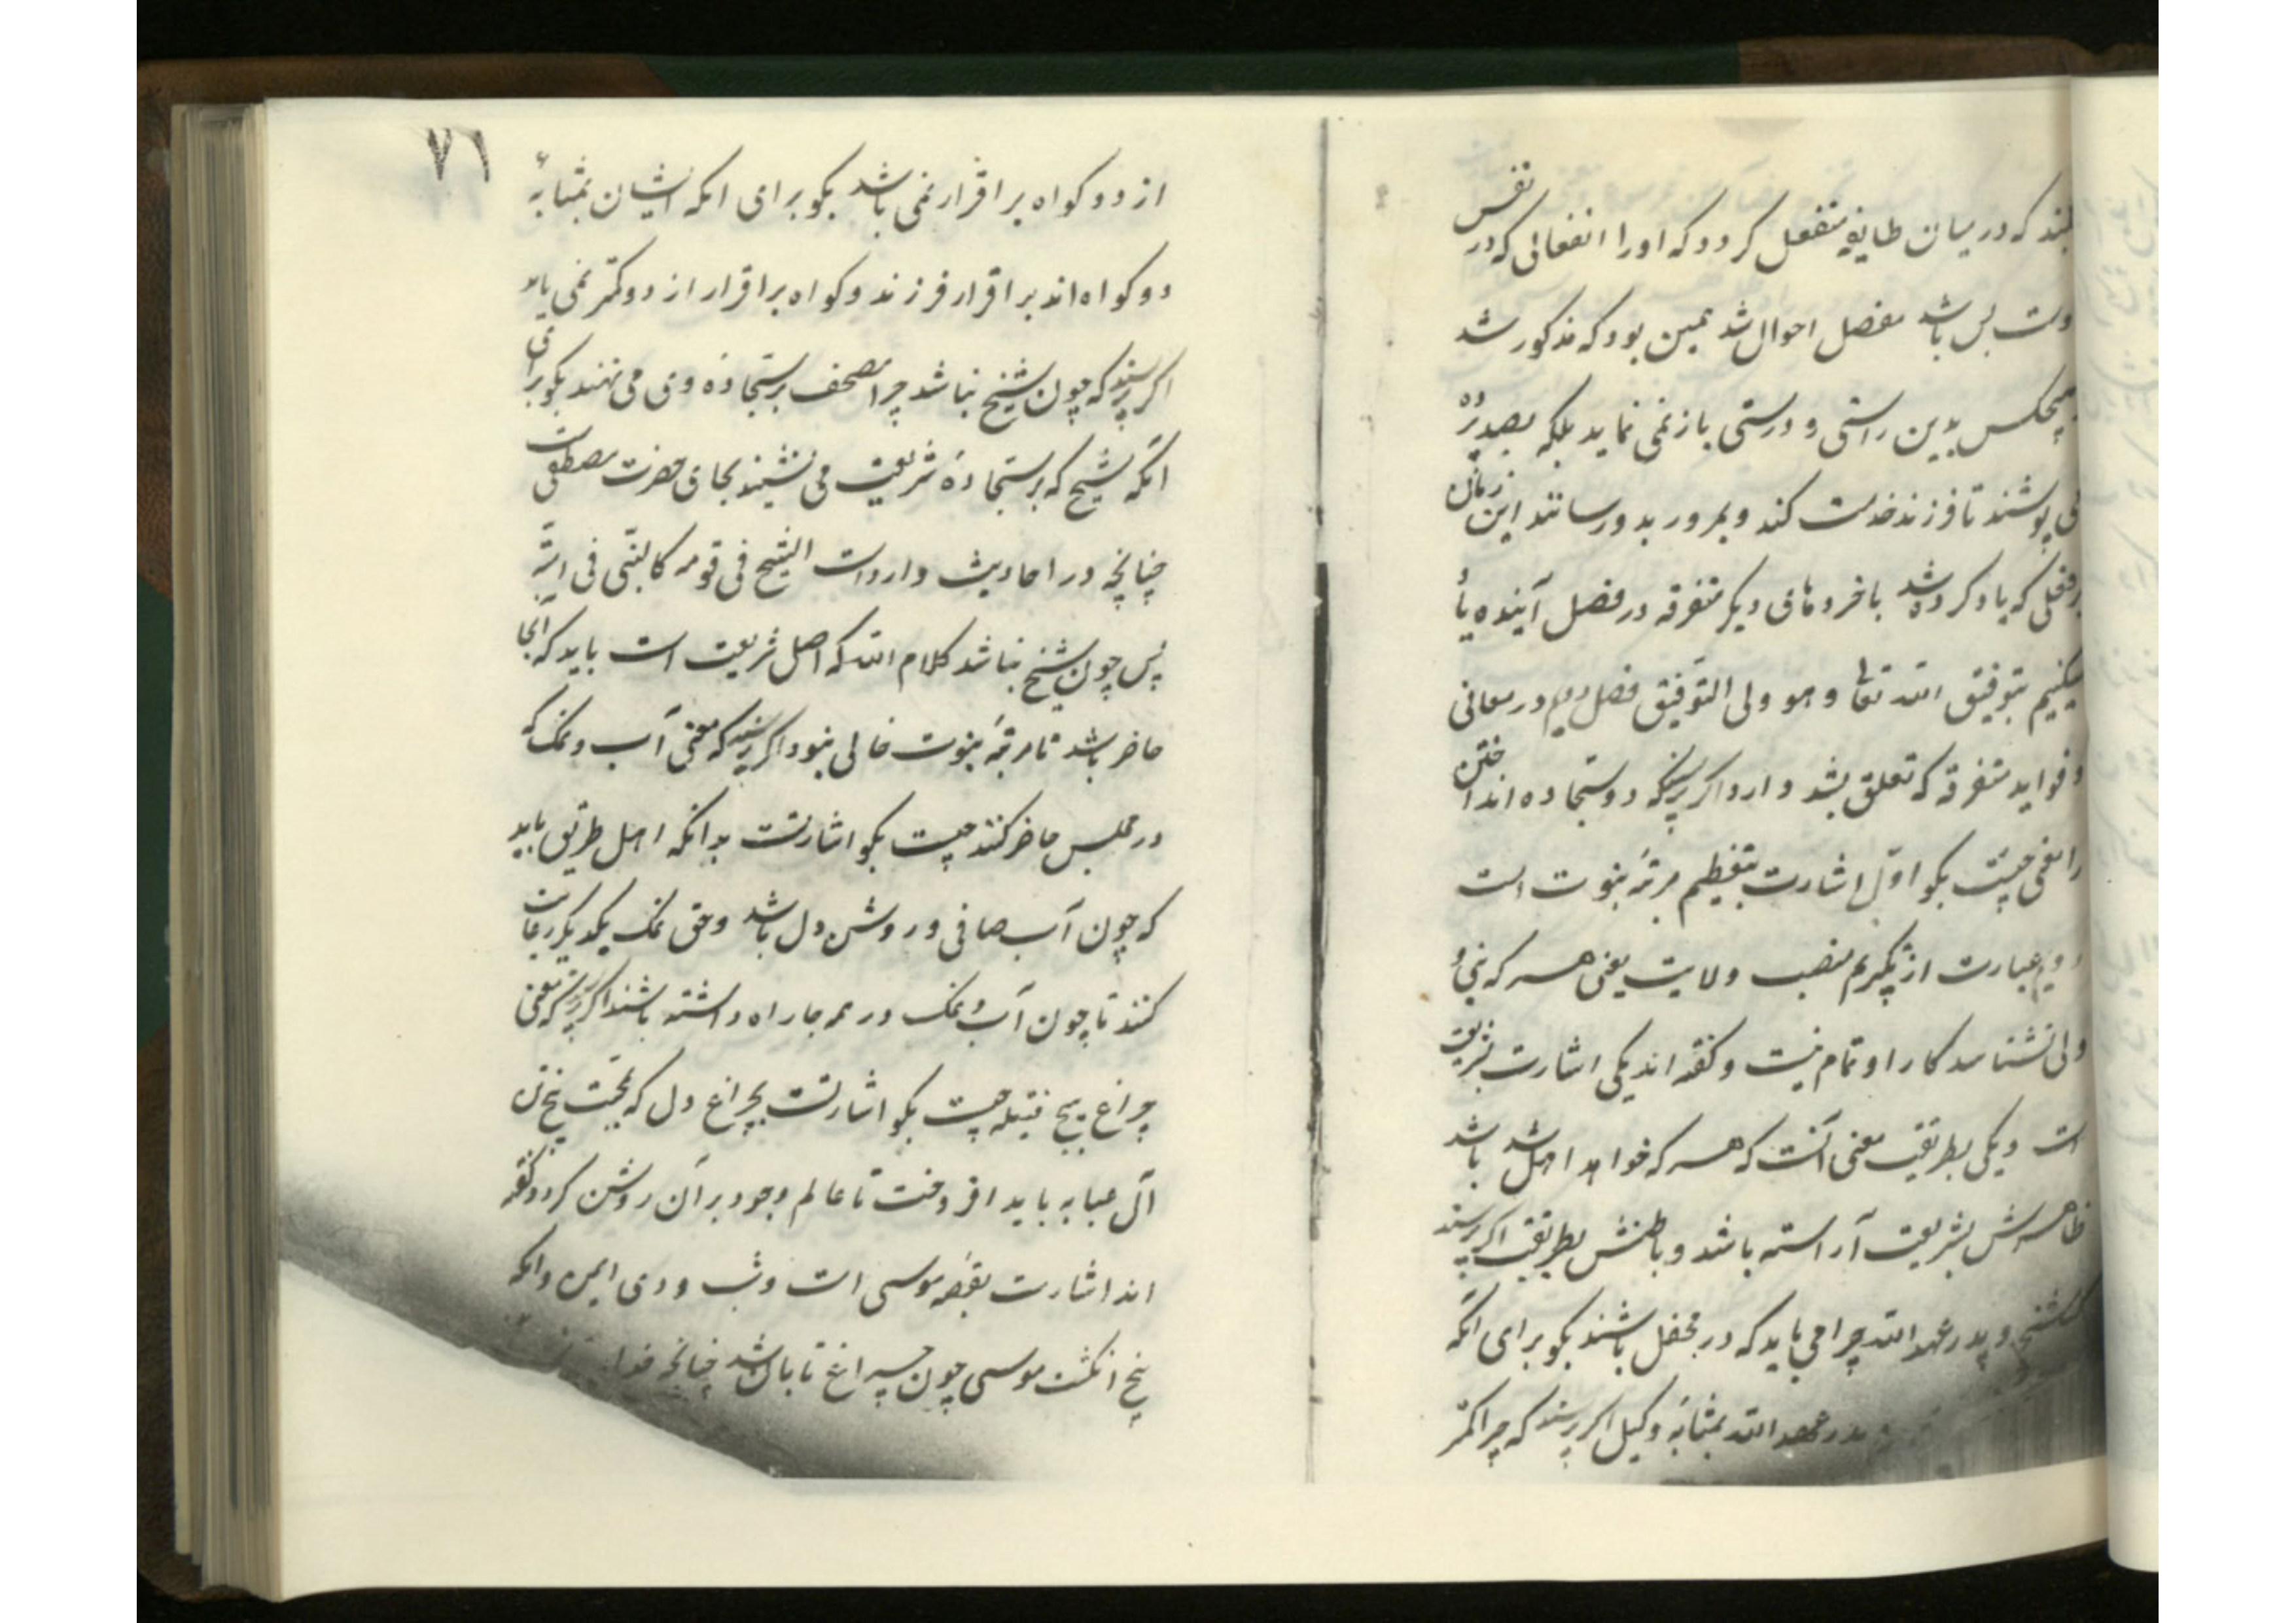 کند که در میان طایفه منفعل گردد که او را انفعالی که در نفس
اوست بس باشد مفصل احوال شد همین بود که مذکور شد
هیچکس بدین راستی و درستی باز نمی نماید بلکه بصد پرده
می پوشند تا فرزند خدمت کند و بمرور بدو رسانند این زمان
که یاد کرده شد با خرده‌های دیگر متفرقه در فصل آینده یاد
میکنیم بتوفیق الله تعالی و هو ولی التوفیق فصل در معانی
و فواید متفرقه که تعلق بشد دارد اگر پرسند که دو سجاده انداختن
را معنی چیست بگو اول اشارت بتعظیم مرتبهٔ نبوت است
دویم عبارت از تکریم منصب ولایت یعنی هر که نبی و
ولی نشناسد کار او تمام نیست و گفته اند یکی اشارت بشریعت
است و یکی بطریقت معنی آنست که هر که خواهد اهل شد باشد
ظاهرش بشریعت آراسته باشد و باطنش بطریقت اگر پرسند
که شیخ و پدر عهد الله چرا می باید که در محفل باشند بگو برای انکه
پدر عهد الله بمثابهٔ وکیل اگر پرسند که چرا کمتر
۷۶
از دو کواه بر اقرار نمی باشد بگو برای انکه ایشان بمثابهٔ
دو کواه اند بر اقرار فرزند و کواه بر اقرار از دو کمتر نمی باید
اگر پرسند که چون شیخ نباشد چرا مصحف بر سجادهٔ وی می نهند بگو برای
انکه شیخ که بر سجادهٔ شریعت می نشیند بجای حضرت مصطفی است
چنانچه در احادیث وارد است الشیخ فی قومه کالنبی فی امته
پس چون شیخ نباشد کلام الله که اصل شریعت است باید که آنجا
حاضر باشد تا مرتبهٔ نبوت خالی نبود اگر پرسند که معنی آب و نمک که
در مجلس حاضر کنند چیست بگو اشارتست بدانکه اهل طریق باید
که چون آب صافی و روشن دل باشد و حق نمک یکدیگر رعایت
کنند تا چون آب و نمک در همه جا راه داشته باشند اگر پرسند که معنی
چراغ پنج فتیله چیست بگو اشارتست بچراغ دل که بمحبت پنج تن
آل عبا به باید افروخت تا عالم وجود بر آن روشن گردد و گفته
اند اشارت بقصهٔ موسی است و شب وادی ایمن و انکه
پنج انگشت موسی چون چراغ تابان شد چنانچه